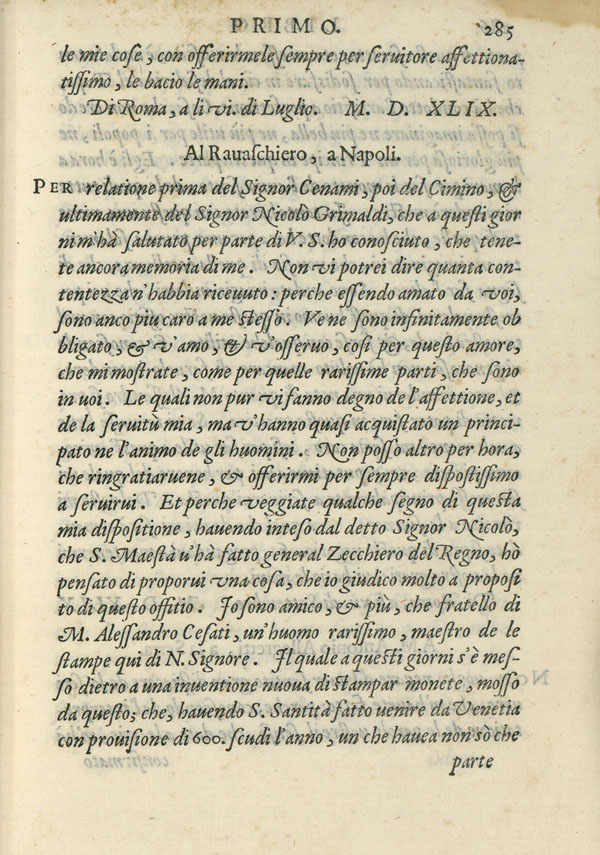 PRIMO. 285
le mie cose, con offerirmele sempre per seruitore affettiona-
tissimo, le bacio le mani.
Di Roma, a li vi. di Luglio. M. D. XLIX.
Al Rauaschiero, a Napoli.
PER relatione prima del Signor Cenami, poi del Cimino, &
ultimamente del Signor Nicolò Grimaldi, che a questi gior
ni m'hà salutato per parte di V. S. ho conosciuto, che tene-
te ancora memoria di me. Non vi potrei dire quanta con-
tentezza n'habbia riceuuto: perche essendo amato da voi,
sono anco piu caro a me stesso. Ve ne sono infinitamente ob
bligato, & v'amo, & v'osseruo, cosi per questo amore,
che mi mostrate, come per quelle rarissime parti, che sono
in uoi. Le quali non pur vi fanno degno de l'affettione, et
de la seruitù mia, ma v'hanno quasi acquistato un princi-
pato ne l'animo de gli huomini. Non posso altro per hora,
che ringratiaruene, & offerirmi per sempre dispostissimo
a seruirui. Et perche veggiate qualche segno di questa
mia dispositione, hauendo inteso dal detto Signor Nicolò,
che S. Maestà u'hà fatto general Zecchiero del Regno, hò
pensato di proporui vna cosa, che io giudico molto a proposi
to di questo offitio. Io sono amico, & più, che fratello di
M. Alessandro Cesati, un'huomo rarissimo, maestro de le
stampe qui di N. Signore. Il quale a questi giorni s'è mes-
so dietro a una inuentione nuoua di stampar monete, mosso
da questo; che, hauendo S. Santità fatto venire da Venetia
con prouisione di 600. scudi l'anno, un che hauea non sò che
parte